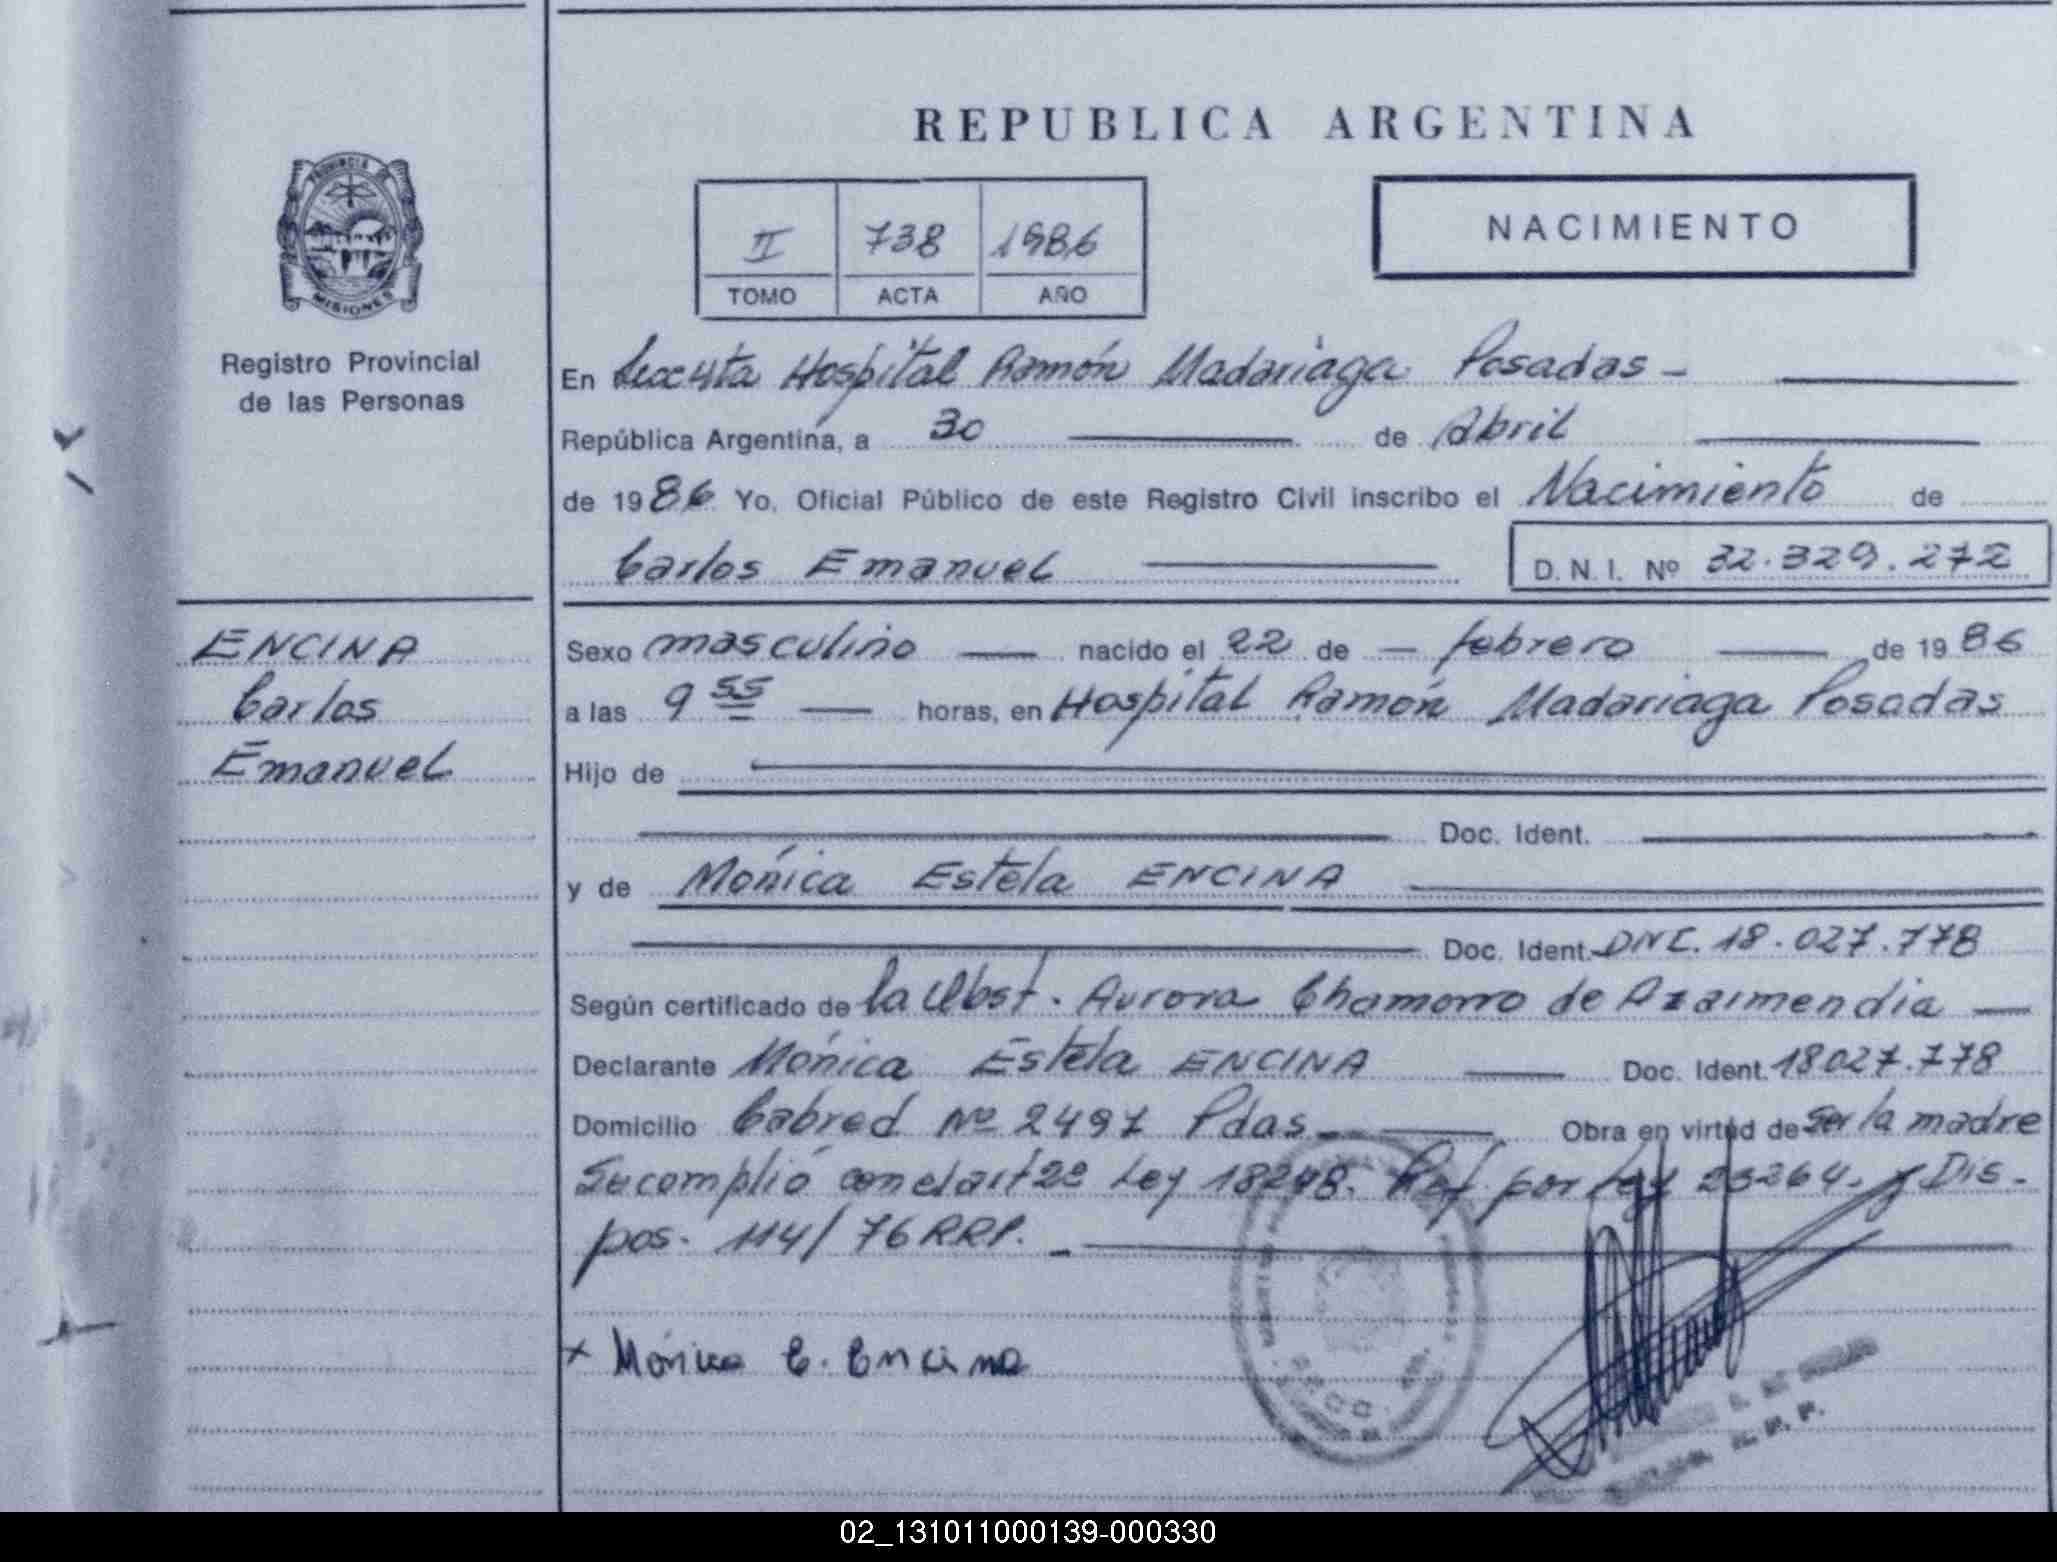 REPUBLICA ARGENTINA
PROVINCIA DE
MISIONES
Registro Provincial
de las Personas
II 738 1986
TOMO ACTA AÑO
NACIMIENTO
En Hospital Ramón Madariaga Posadas -
República Argentina, a 30 de Abril
de 1986 Yo, Oficial Público de este Registro Civil inscribo el Nacimiento de
Carlos Emanuel D. N. I. Nº 32.329.272
ENCINA
Carlos
Emanuel
Sexo masculino nacido el 22 de febrero de 1986
a las 9 55 horas, en Hospital Ramón Madariaga Posadas
Hijo de
Doc. Ident.
y de Mónica Estela ENCINA
Doc. Ident. DNI. 18.027.778
Según certificado de la Obst. Aurora Chamorro de Azarmendia
Declarante Mónica Estela ENCINA Doc. Ident. 18027.778
Domicilio Cabred Nº 2497 Pdas. Obra en virtud de Ser la madre
Se cumplió con el art 2º Ley 18248. por Ley 23264. y Dis-
pos. 114/76 RRP.
x Mónica E. Encina
R. P. P.
02_131011000139-000330